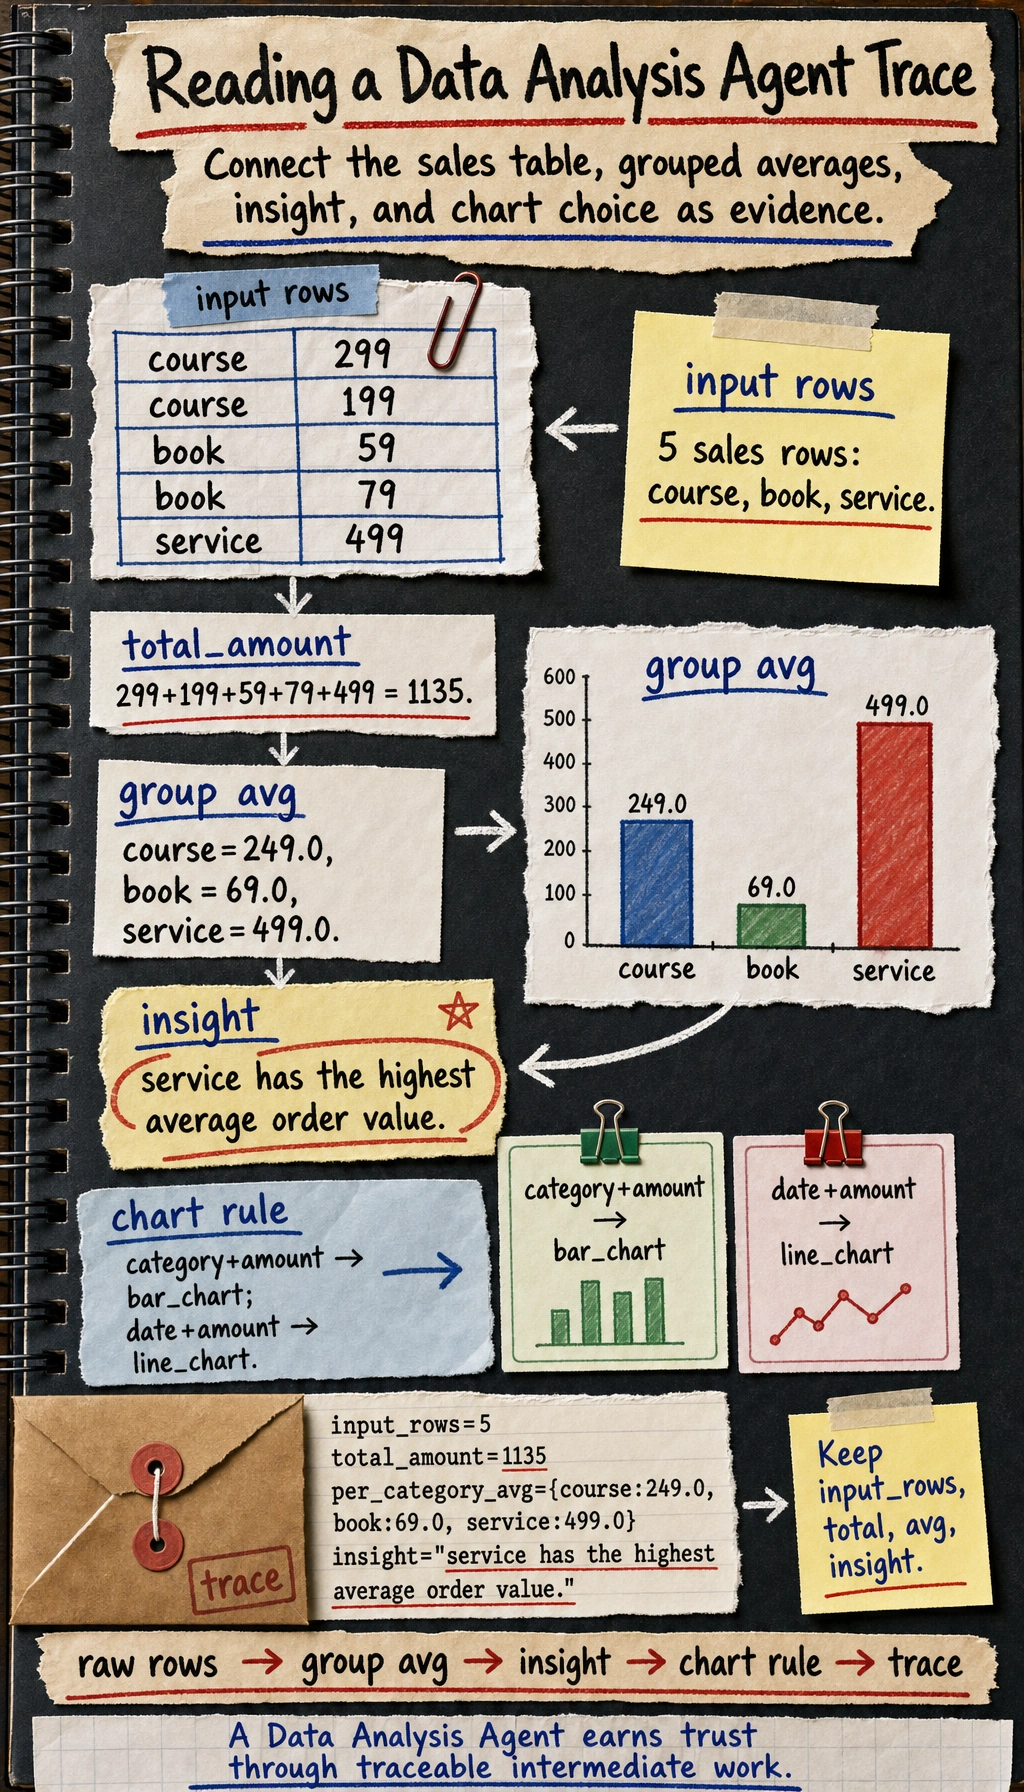 Reading a Data Analysis Agent Trace
Connect the sales table, grouped averages,
insight, and chart choice as evidence.
input rows
course 299
course 199
book 59
book 79
service 499
input rows
5 sales rows:
course, book, service.
total_amount
299+199+59+79+499 = 1135.
group avg
course=249.0,
book = 69.0,
service=499.0.
group avg
600
500
400
300
200
100
0
249.0
69.0
499.0
course book service
insight
service has the highest
average order value.
chart rule
category+amount →
bar_chart;
date+amount →
line_chart.
category+amount
→
bar_chart
date+amount
→
line_chart
trace
input_rows=5
total_amount=1135
per_category_avg={course:249.0,
book:69.0, service:499.0}
insight="service has the highest
average order value."
Keep
input_rows,
total, avg,
insight.
raw rows → group avg → insight → chart rule → trace
A Data Analysis Agent earns trust
through traceable intermediate work.